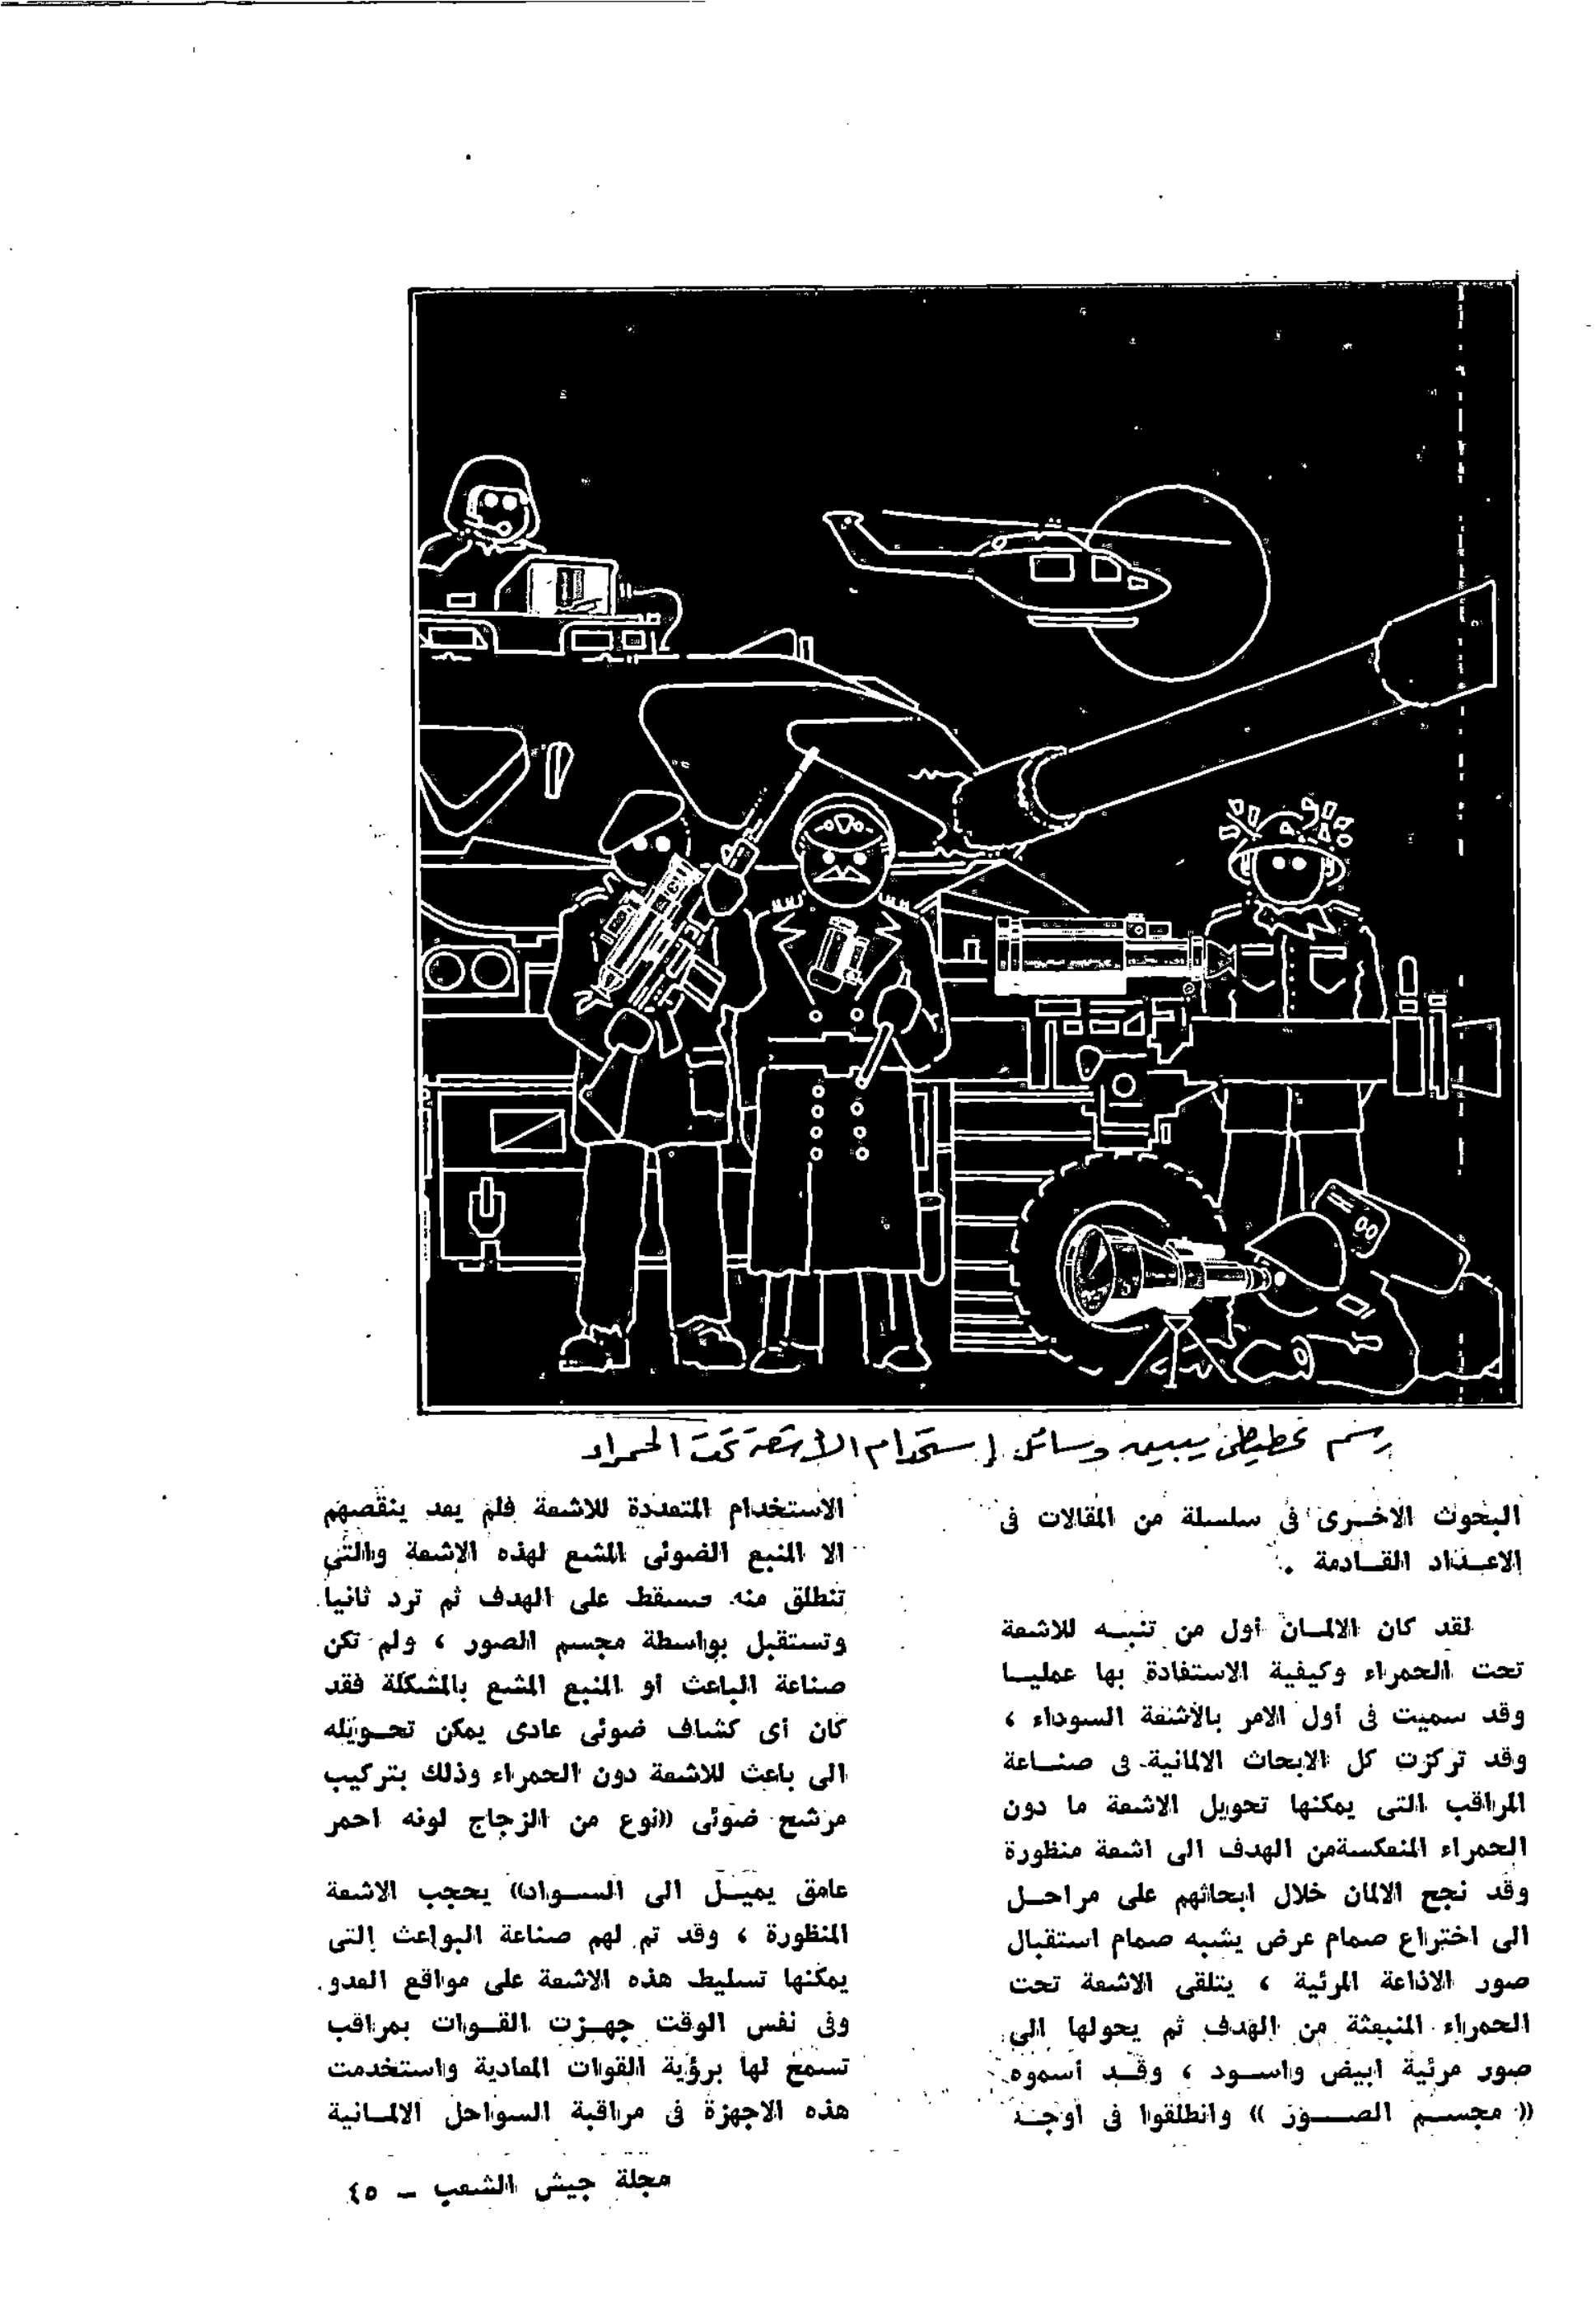 رسم تخطيطى يبين وسائل إستخدام الأشعة تحت الحمراء
البحوث الاخـرى فى سلسلة من المقالات فى
الاعـداد القـادمة .
لقد كان الالمـان أول من تنبـه للاشعة
تحت الحمراء وكيفية الاستفادة بها عمليـا
وقد سميت فى أول الامر بالأشعة السوداء ،
وقد تركزت كل الابحاث الالمانية فى صنـاعة
المراقب التى يمكنها تحويل الاشعة ما دون
الحمراء المنعكسةمن الهدف الى اشعة منظورة
وقد نجح الالمان خلال ابحاثهم على مراحـل
الى اختراع صمام عرض يشبه صمام استقبال
صور الاذاعة المرئية ، يتلقى الاشعة تحت
الحمراء المنبعثة من الهدف ثم يحولها الى
صور مرئية ابيض واسـود ، وقـد أسموه
« مجسـم الصـــور » وانطلقوا فى أوجـه
الاستخدام المتعددة للاشعة فلم يعد ينقصهم
الا المنبع الضوئى المشع لهذه الاشعة والتى
تنطلق منه فتسقط على الهدف ثم ترد ثانيا
وتستقبل بواسطة مجسم الصور ، ولم تكن
صناعة الباعث أو المنبع المشع بالمشكلة فقد
كان أى كشاف ضوئى عادى يمكن تحـويله
الى باعث للاشعة دون الحمراء وذلك بتركيب
مرشح ضوئى «نوع من الزجاج لونه احمر
غامق يميـل الى السـواد» يحجب الاشعة
المنظورة ، وقد تم لهم صناعة البواعث التى
يمكنها تسليط هذه الاشعة على مواقع العدو .
وفى نفس الوقت جهـزت القـوات بمراقب
تسمح لها برؤية القوات المعادية واستخدمت
هذه الاجهزة فى مراقبة السواحل الالمـانية
مجلة جيش الشعب – ٤٥